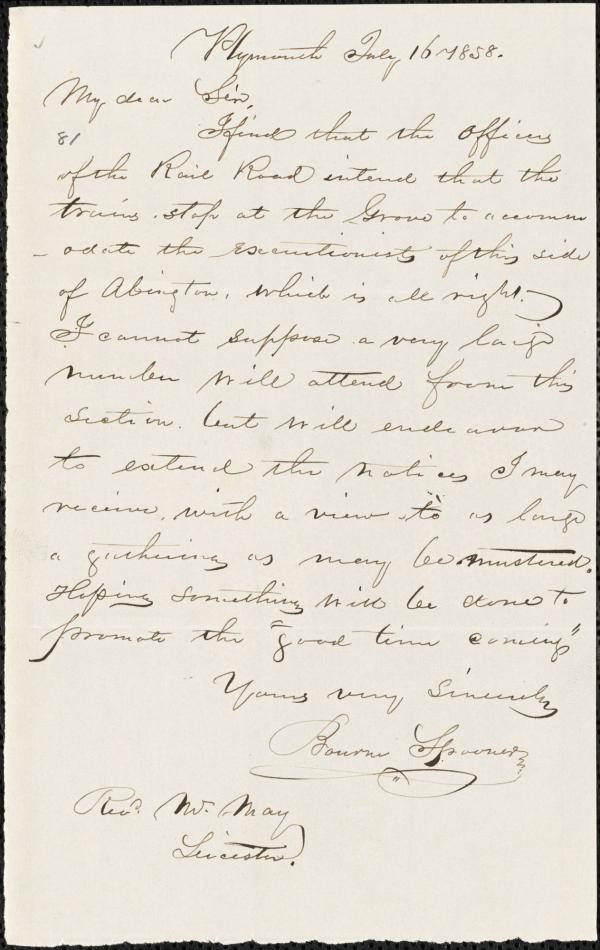 Plymouth July 16 1858.
My dear Sir,
81
I find that the officers
of the Rail Road intend that the
trains stop at the Grove to accomm
- odate the excurtionists of this side
of Abington, which is all right.
I cannot suppose a very large
number will attend from this
section. but will endeavor
to extend the notices I may
receive, with a view to as large
a gathering as may be mustered.
Hoping something will be done to
promote the "good time coming"
Yours very sincerely
Bourne Spooner
Revd. Mr. May
Leicester.